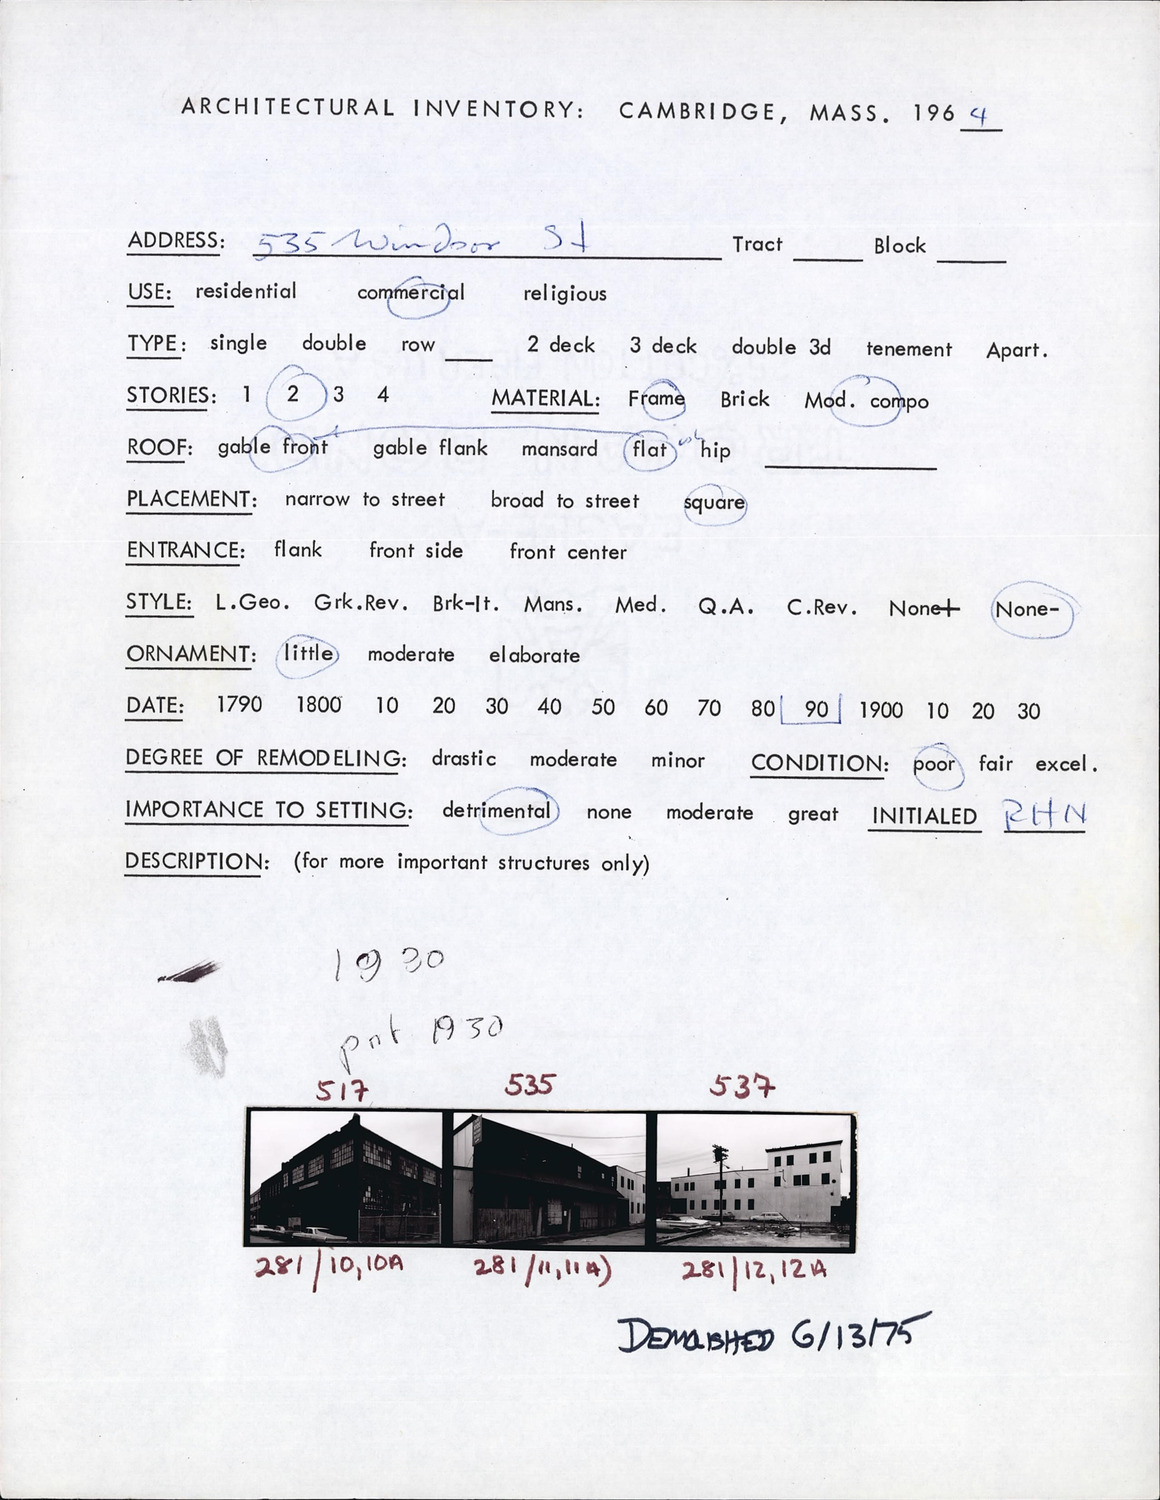 ARCHITECTURAL INVENTORY: CAMBRIDGE, MASS. 1964
ADDRESS: 535 Windsor St Tract Block
USE: residential commercial religious
TYPE: single double row 2 deck 3 deck double 3d tenement Apart.
STORIES: 1 2 3 4 MATERIAL: Frame Brick Mod. compo
ROOF: gable front gable flank mansard flat hip
PLACEMENT: narrow to street broad to street square
ENTRANCE: flank front side front center
STYLE: L.Geo. Grk.Rev. Brk-It. Mans. Med. Q.A. C.Rev. None+ None-
ORNAMENT: little moderate elaborate
DATE: 1790 1800 10 20 30 40 50 60 70 80 90 1900 10 20 30
DEGREE OF REMODELING: drastic moderate minor CONDITION: poor fair excel.
IMPORTANCE TO SETTING: detrimental none moderate great INITIALED RHN
DESCRIPTION: (for more important structures only)
1930
1930
517 535 537
281/10,10A 281/11,11A) 281/12,12A
DEMOLISHED 6/13/75